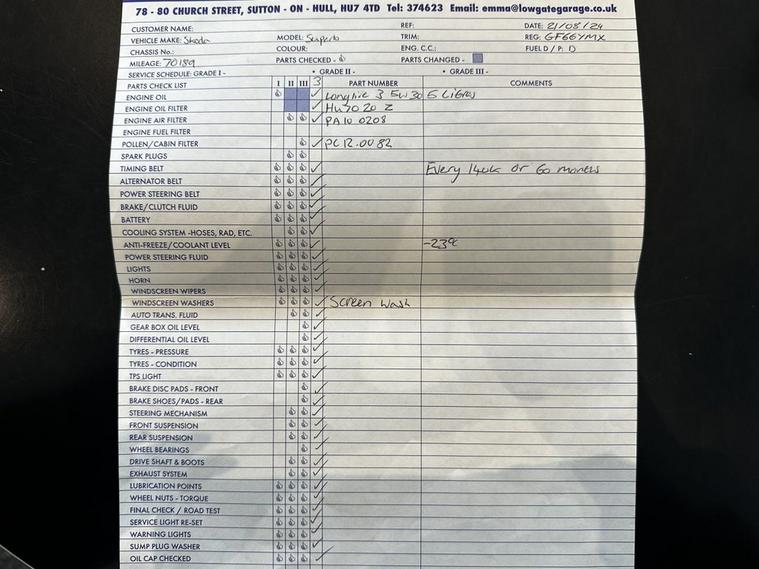 78 - 80 CHURCH STREET, SUTTON - ON - HULL, HU7 4TD Tel: 374623 Email: emma@lowgategarage.co.uk
CUSTOMER NAME: REF: DATE: 21/08/24
VEHICLE MAKE: Skoda MODEL: Superb TRIM: REG: GF66YMX
CHASSIS No: COLOUR: ENG. C.C.: FUEL D / P: D
MILEAGE: 70189 PARTS CHECKED - PARTS CHANGED -
SERVICE SCHEDULE: GRADE I - • GRADE II - • GRADE III -
PARTS CHECK LIST I II III 3 PART NUMBER COMMENTS
ENGINE OIL Longlife 3 5w30 5 Litres
ENGINE OIL FILTER HU7020 Z
ENGINE AIR FILTER ✓ PA10 0208
ENGINE FUEL FILTER
POLLEN/CABIN FILTER ✓ PC12.0082
SPARK PLUGS
TIMING BELT ✓ Every 140k or 60 months
ALTERNATOR BELT ✓
POWER STEERING BELT ✓
BRAKE/CLUTCH FLUID ✓
BATTERY ✓
COOLING SYSTEM -HOSES, RAD, ETC. ✓
ANTI-FREEZE/COOLANT LEVEL ✓ -23°c
POWER STEERING FLUID ✓
LIGHTS ✓
HORN ✓
WINDSCREEN WIPERS ✓
WINDSCREEN WASHERS ✓ Screen Wash
AUTO TRANS. FLUID ✓
GEAR BOX OIL LEVEL ✓
DIFFERENTIAL OIL LEVEL ✓
TYRES - PRESSURE ✓
TYRES - CONDITION ✓
TPS LIGHT ✓
BRAKE DISC PADS - FRONT ✓
BRAKE SHOES/PADS - REAR ✓
STEERING MECHANISM ✓
FRONT SUSPENSION ✓
REAR SUSPENSION ✓
WHEEL BEARINGS ✓
DRIVE SHAFT & BOOTS ✓
EXHAUST SYSTEM ✓
LUBRICATION POINTS ✓
WHEEL NUTS - TORQUE ✓
FINAL CHECK / ROAD TEST ✓
SERVICE LIGHT RE-SET ✓
WARNING LIGHTS ✓
SUMP PLUG WASHER ✓
OIL CAP CHECKED ✓